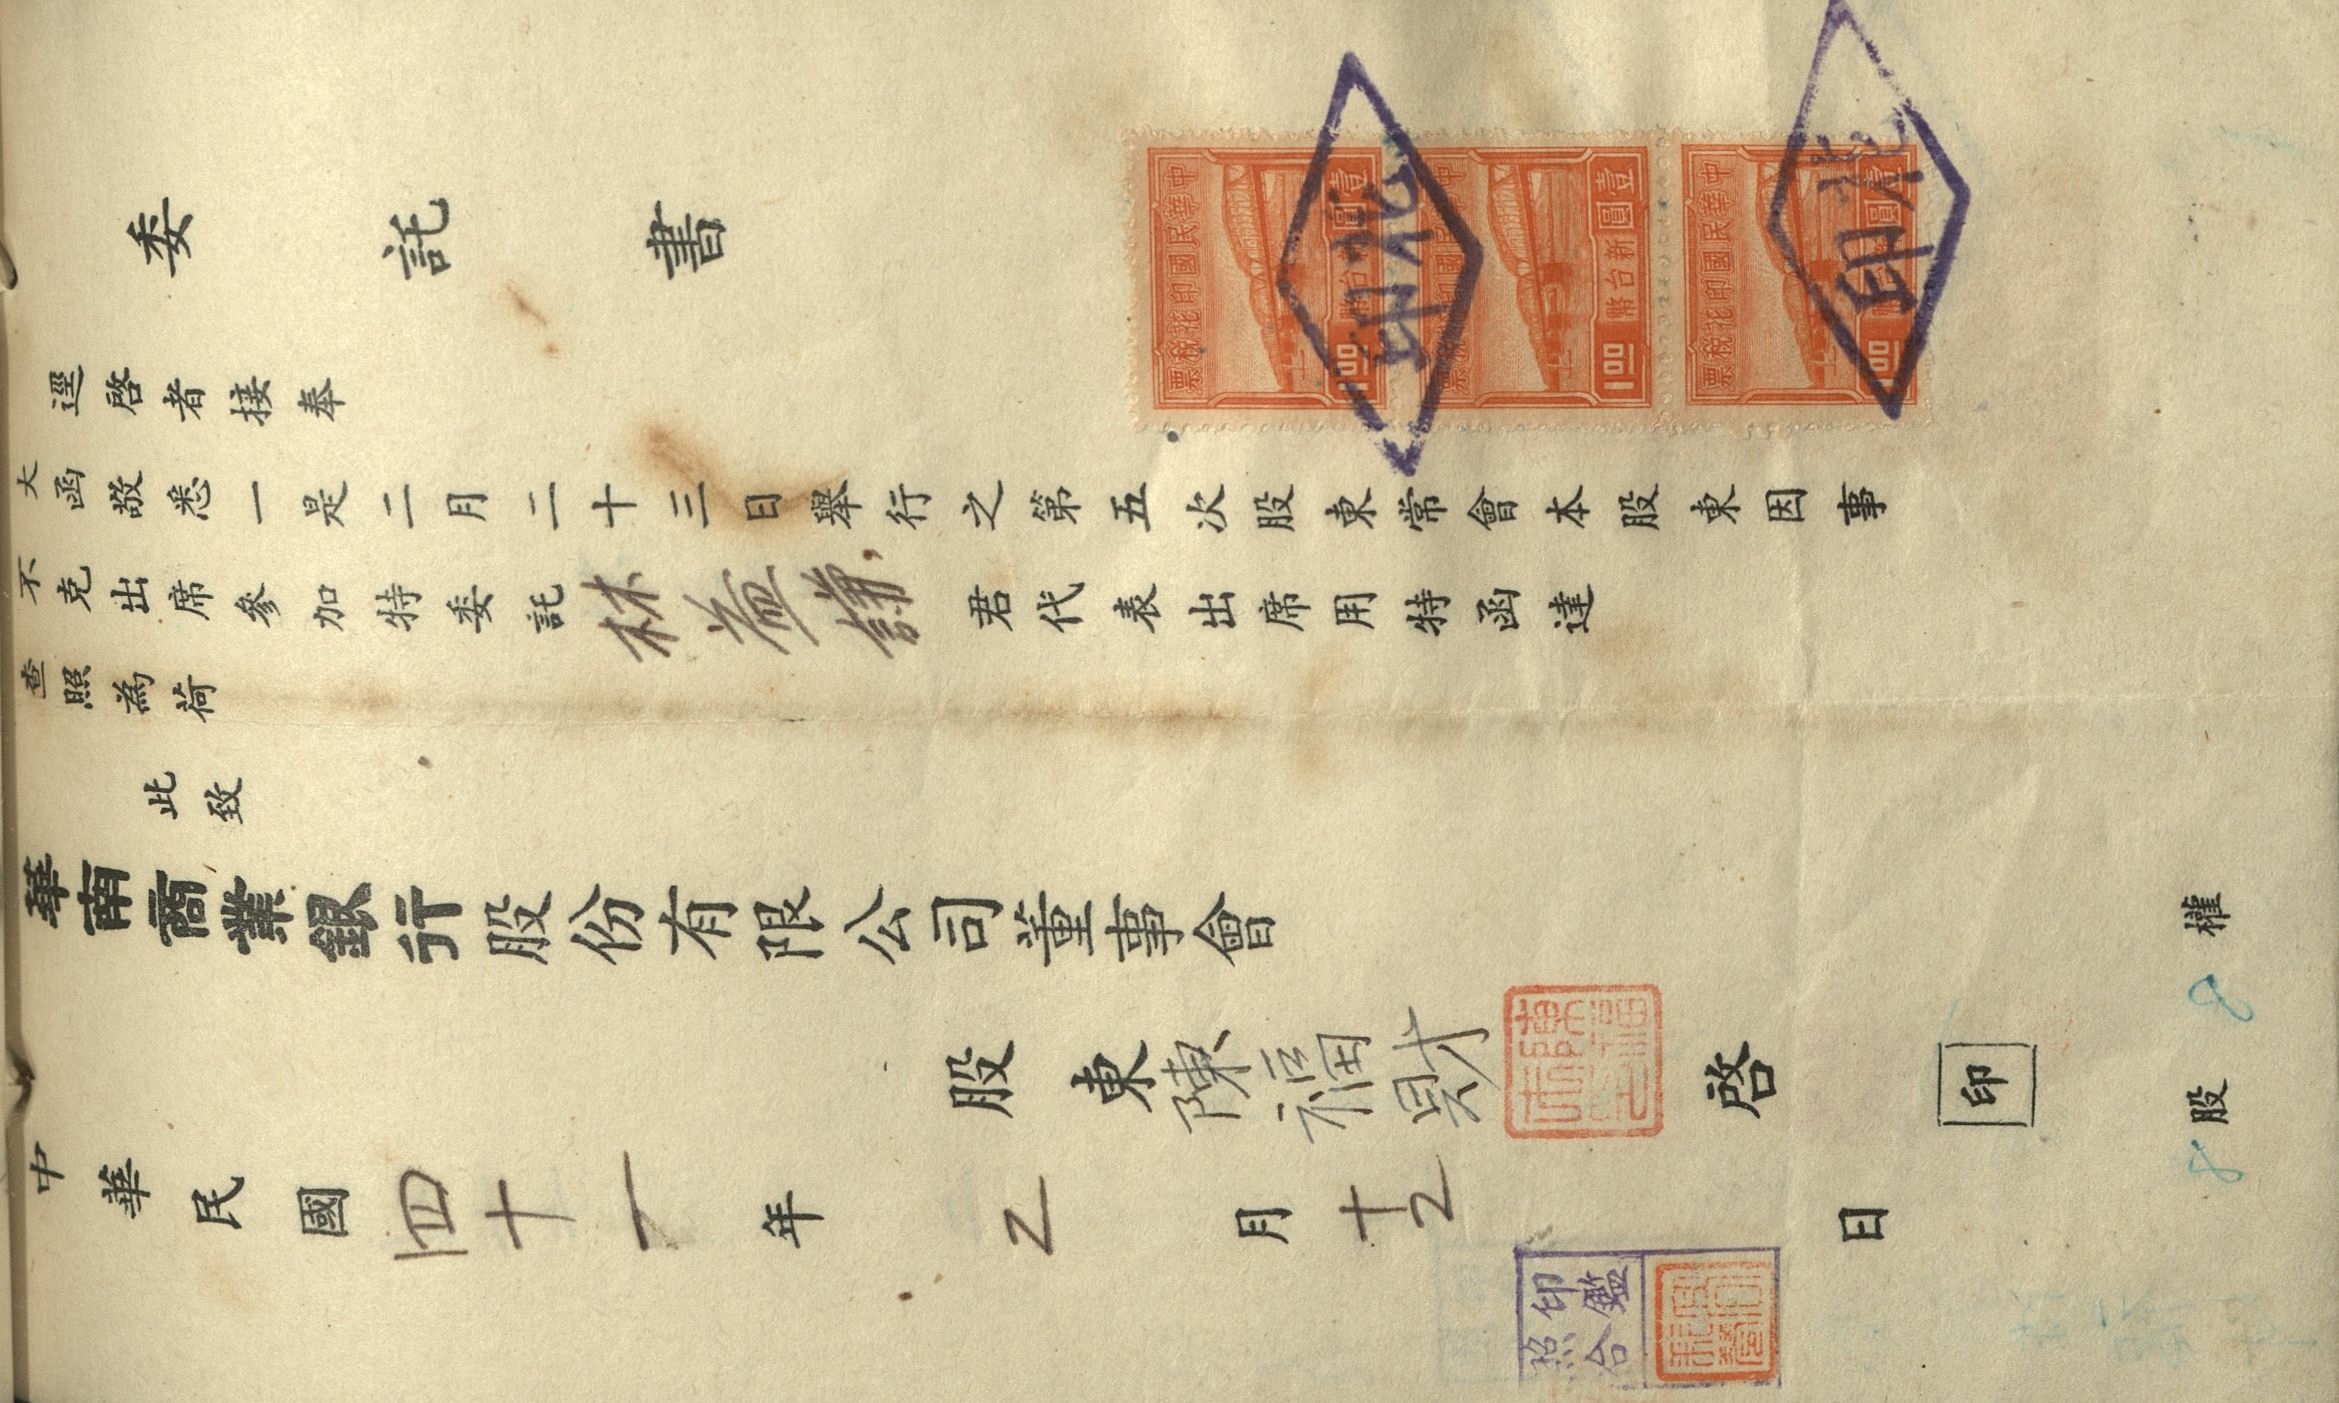 委託書
逕啓者接奉
大函敬悉一是二月二十三日舉行之第五次股東常會本股東因事
不克出席參加特委託林益謙君代表出席用特函達
查照為荷
此致
華南商業銀行股份有限公司董事會
股東陳福財啓 印
中華民國四十一年2月十2日
8股8權
中華民國印花稅票
壹圓
新台幣
1.00
中華民國印花稅票
壹圓
新台幣
1.00
中華民國印花稅票
壹圓
1.00
印鑑
照合